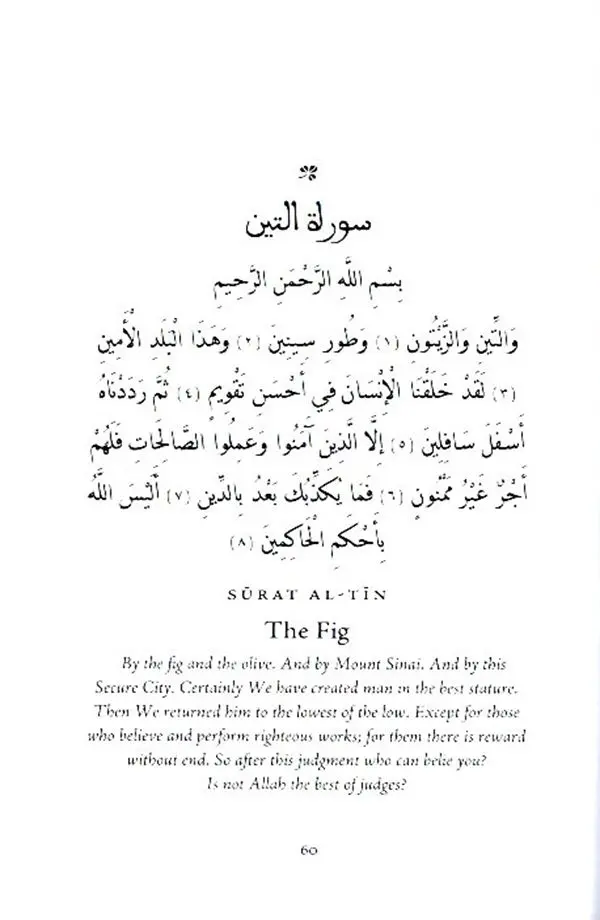 سورة التين
بِسْمِ اللَّهِ الرَّحْمَنِ الرَّحِيمِ
وَالتِّينِ وَالزَّيْتُونِ (١) وَطُورِ سِينِينَ (٢) وَهَذَا الْبَلَدِ الْأَمِينِ
(٣) لَقَدْ خَلَقْنَا الْإِنْسَانَ فِي أَحْسَنِ تَقْوِيمٍ (٤) ثُمَّ رَدَدْنَاهُ
أَسْفَلَ سَافِلِينَ (٥) إِلَّا الَّذِينَ آمَنُوا وَعَمِلُوا الصَّالِحَاتِ فَلَهُمْ
أَجْرٌ غَيْرُ مَمْنُونٍ (٦) فَمَا يُكَذِّبُكَ بَعْدُ بِالدِّينِ (٧) أَلَيْسَ اللَّهُ
بِأَحْكَمِ الْحَاكِمِينَ (٨)
SŪRAT AL-TĪN
The Fig
By the fig and the olive. And by Mount Sinai. And by this
Secure City. Certainly We have created man in the best stature.
Then We returned him to the lowest of the low. Except for those
who believe and perform righteous works; for them there is reward
without end. So after this judgment who can belie you?
Is not Allah the best of judges?
60